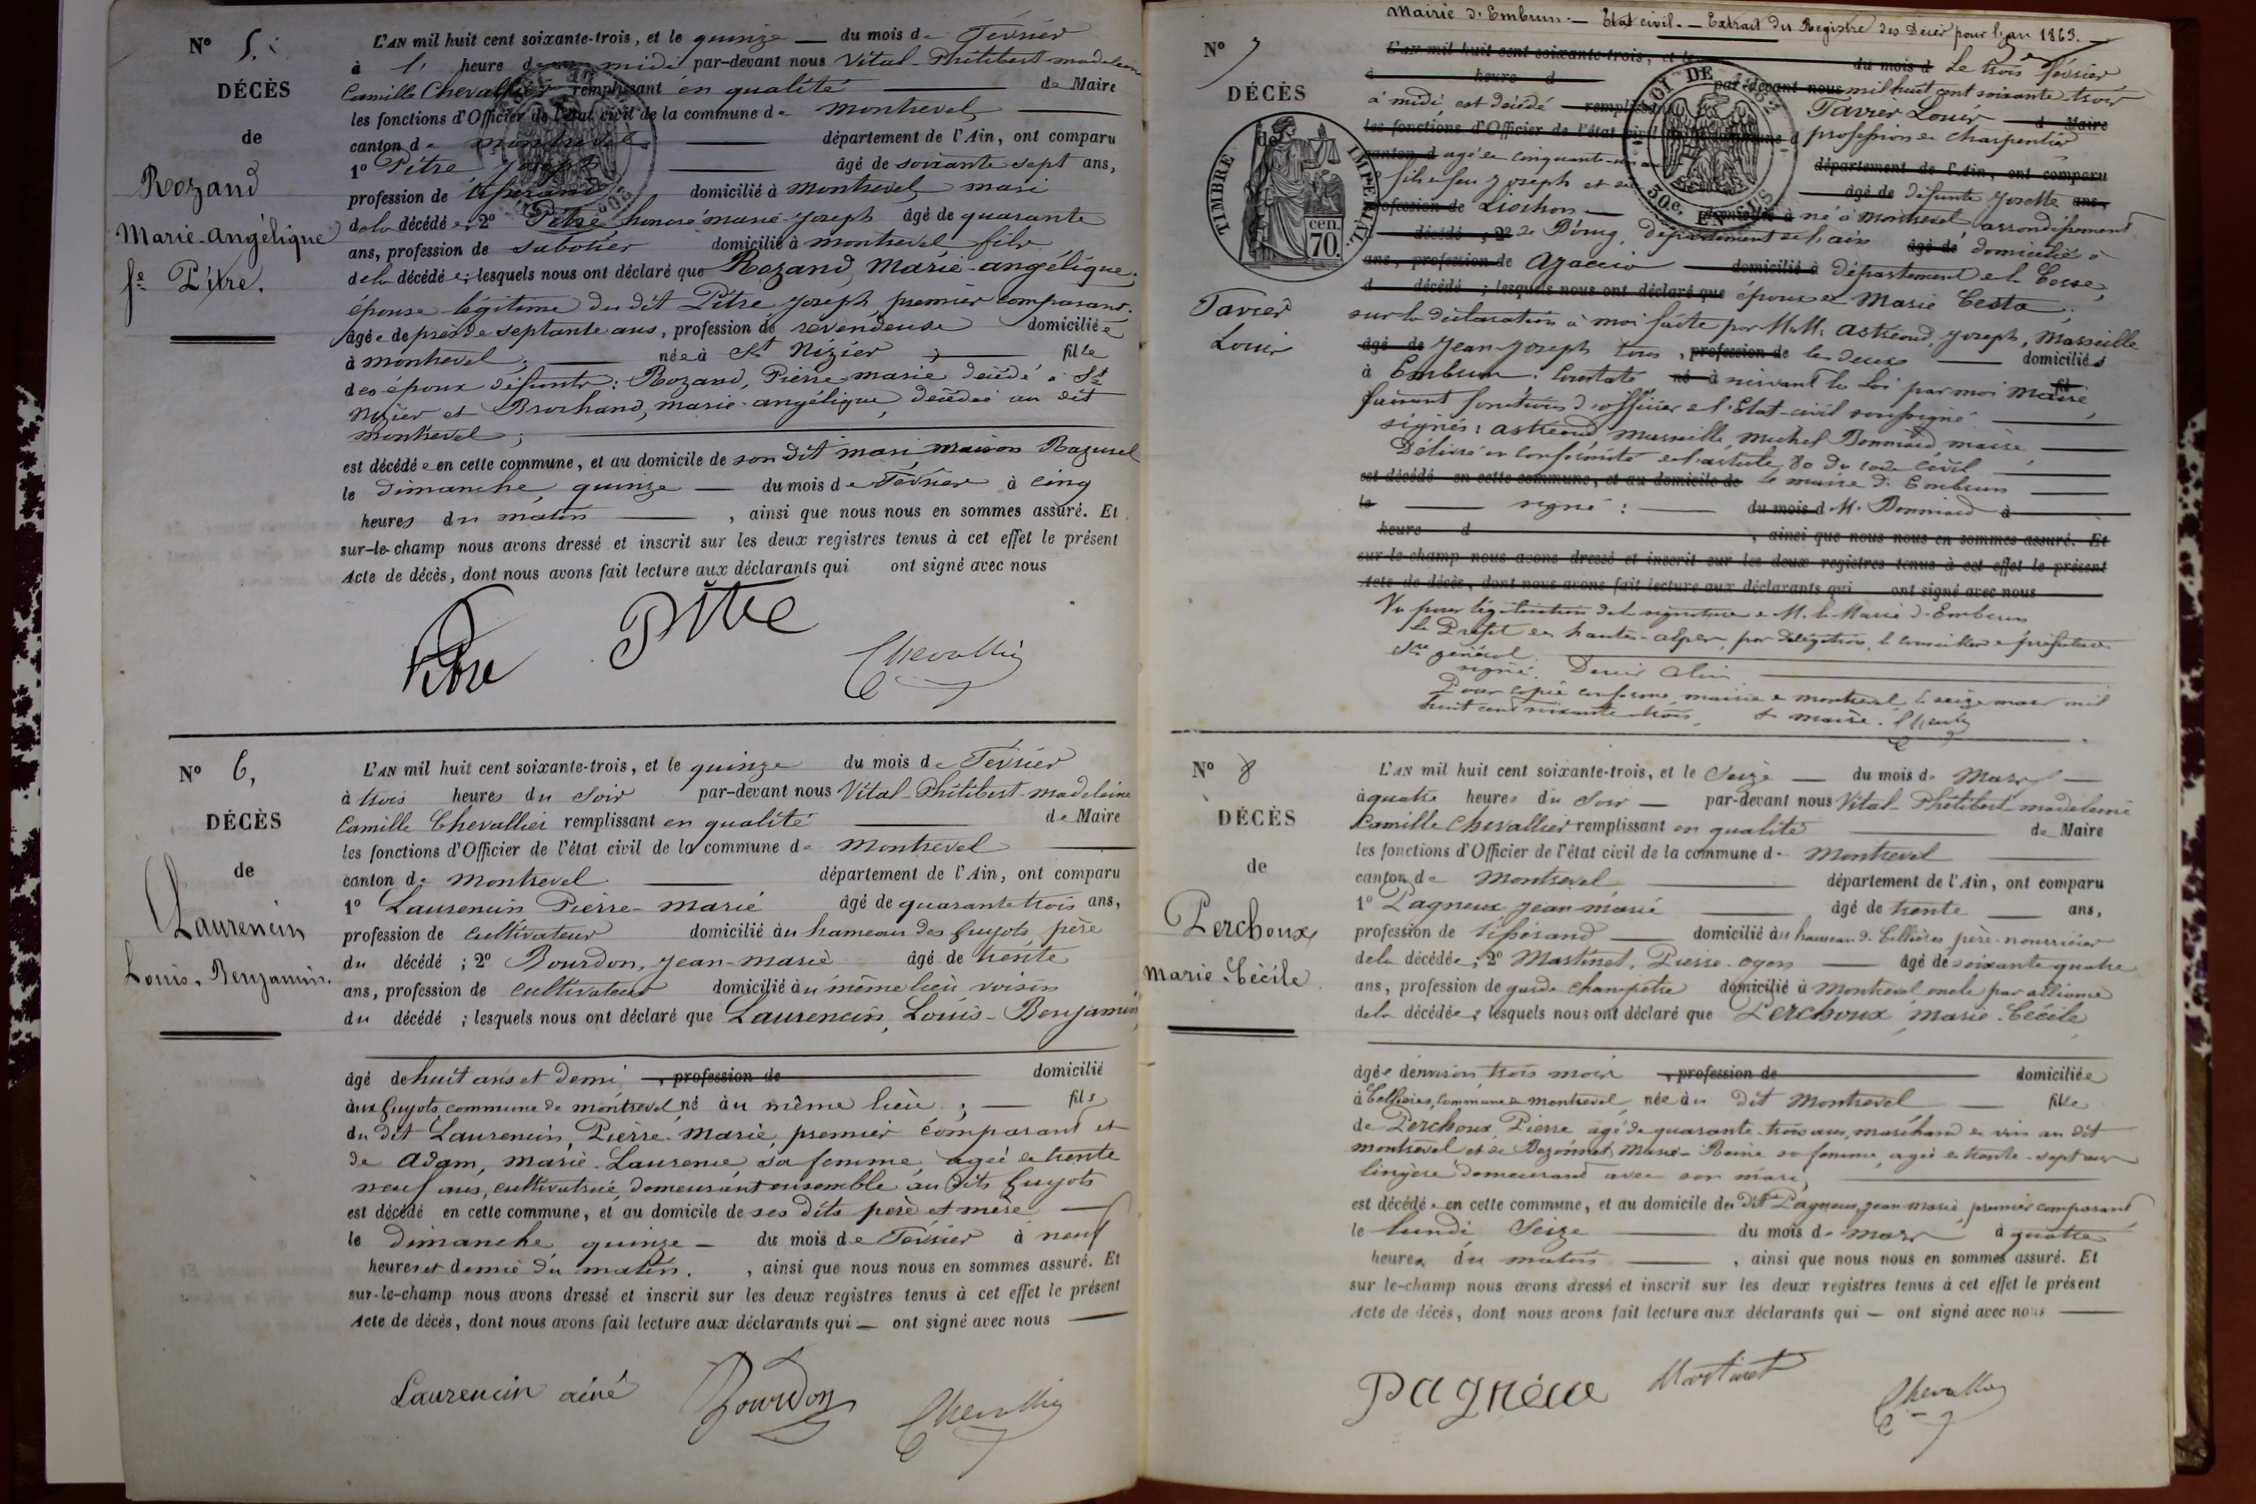 N° 5.
DÉCÈS
de
Rozand
Marie-Angélique
fe Pitre.
L'AN mil huit cent soixante-trois, et le quinze — du mois de Février
à 1' heure midi par-devant nous Vital-Philibert-madeleine
Camille Chevallier remplissant en qualité de Maire
les fonctions d'Officier de l'état civil de la commune de Montrevel
canton de montrevel département de l'Ain, ont comparu
1° Pitre Joseph âgé de soixante sept ans,
profession de tisserand domicilié à Montrevel mari
de la décédée; 2° Pitre honoré marie-Joseph âgé de quarante
ans, profession de sabotier domicilié à montrevel fils
de la décédée; lesquels nous ont déclaré que Rozand, Marie-angélique,
épouse légitime du dit Pitre Joseph, premier comparant,
âgée de près de septante ans, profession de revendeuse domiciliée
à montrevel; née à St Nizier; fille
des époux défunts: Rozand, Pierre marie décédé à St
Nizier et Brochand, marie-angélique, décédée au dit
montrevel;
est décédée en cette commune, et au domicile de son dit mari, maison Razurel
le dimanche quinze — du mois de Février à cinq
heures du matin, ainsi que nous nous en sommes assuré. Et
sur-le-champ nous avons dressé et inscrit sur les deux registres tenus à cet effet le présent
Acte de décès, dont nous avons fait lecture aux déclarants qui ont signé avec nous
Pitre Pitre Chevallier
N° 6,
DÉCÈS
de
Laurencin
Louis-Benjamin.
L'AN mil huit cent soixante-trois, et le quinze du mois de Février
à trois heures du soir par-devant nous Vital-Philibert-madeleine
Camille Chevallier remplissant en qualité de Maire
les fonctions d'Officier de l'état civil de la commune de Montrevel
canton de Montrevel département de l'Ain, ont comparu
1° Laurencin Pierre-marie âgé de quarante trois ans,
profession de cultivateur domicilié au hameau des Guyots père
du décédé; 2° Bourdon, Jean-marie âgé de trente
ans, profession de cultivateur domicilié au même lieu voisin
du décédé; lesquels nous ont déclaré que Laurencin, Louis-Benjamin
âgé de huit ans et demi, profession de domicilié
aux Guyots, commune de montrevel né au même lieu; — fils
du dit Laurencin, Pierre-Marie, premier comparant et
de Adam, marie-Laurence, sa femme, agée de trente
neuf ans, cultivatrice, demeurant ensemble au dits Guyots
est décédé en cette commune, et au domicile de ses dits père et mère
le dimanche quinze — du mois de Février à neuf
heures et demie du matin., ainsi que nous nous en sommes assuré. Et
sur-le-champ nous avons dressé et inscrit sur les deux registres tenus à cet effet le présent
Acte de décès, dont nous avons fait lecture aux déclarants qui — ont signé avec nous
Laurencin ainé Bourdon Chevallier
Mairie d'Embrun. — Etat civil. — Extrait du Registre des Décès pour l'an 1863.
N° 7
DÉCÈS
de
TIMBRE IMPÉRIAL.
cen. 70.
Tavier
Louis
L'AN mil huit cent soixante-trois, et le du mois d Le trois Février
à heure d par-devant nous mil huit cent soixante-trois
à midi est décédé remplissant Tavier Louis d Maire
les fonctions d'Officier de l'état civil de la commune d profession de charpentier
canton d agé de cinquante-un ans département de l'Ain, ont comparu
fils de feu Joseph et de âgé de défunte Josette ans,
profession de Liochon — domicilié à né à montrevel arrondissement
décédé; 2° de Bourg, département de l'ain âgé de domicilié à
ans, profession de Ajaccio domicilié à département de la Corse,
d décédé; lesquels nous ont déclaré que époux de Marie Costa;
sur la déclaration à moi faite par M.M. Astréoud, Joseph, Marseille
âgé de Jean-Joseph tous, profession de les deux domiciliés
à Embrun; Constaté né à suivant la Loi par moi Maire,
faisant fonctions d'officier de l'Etat-civil soussigné
signés: Astréoud, Marseille, Michel Bonniard, maire,
Délivré en conformité de l'article 80 du code civil
est décédé en cette commune, et au domicile de le maire d'Embrun
le signé: du mois d M. Bonniard à
heure d, ainsi que nous nous en sommes assuré. Et
sur-le-champ nous avons dressé et inscrit sur les deux registres tenus à cet effet le présent
Acte de décès, dont nous avons fait lecture aux déclarants qui ont signé avec nous
Vu pour légalisation de la signature de M. le Maire d'Embrun
Le Préfet des hautes-alpes, par délégation, le conseiller de préfecture
Sre général
signé:
Pour copie conforme, mairie de montrevel, le seize mars mil
huit cent soixante-trois, Le maire.
N° 8
DÉCÈS
de
Perchoux
Marie-Cécile
L'AN mil huit cent soixante-trois, et le Seize — du mois de Mars —
à quatre heures du soir — par-devant nous Vital-Philibert-madeleine
Camille Chevallier remplissant en qualité de Maire
les fonctions d'Officier de l'état civil de la commune de Montrevel
canton de Montrevel département de l'Ain, ont comparu
1° Pagneux Jean-marie âgé de trente — ans,
profession de tisserand domicilié au hameau de Cillières père-nourricier
de la décédée; 2° Martinet, Pierre-oyen âgé de soixante quatre
ans, profession de garde champêtre domicilié à Montrevel oncle par alliance
de la décédée; lesquels nous ont déclaré que Perchoux, Marie-Cécile
âgée d'environ trois mois, profession de domiciliée
à Cillières, commune de montrevel, née au dit Montrevel — fille
de Perchoux Pierre agé de quarante-trois ans, marchand de vin au dit
montrevel et de Bezonnet, Marie-Reine sa femme, agée de trente-sept ans
lingère demeurant avec son mari,
est décédée en cette commune, et au domicile du dit Pagneux, Jean-marie, premier comparant,
le lundi Seize du mois de mars à quatre
heures du matin, ainsi que nous nous en sommes assuré. Et
sur-le-champ nous avons dressé et inscrit sur les deux registres tenus à cet effet le présent
Acte de décès, dont nous avons fait lecture aux déclarants qui — ont signé avec nous
Pagnéux Martinet Chevallier